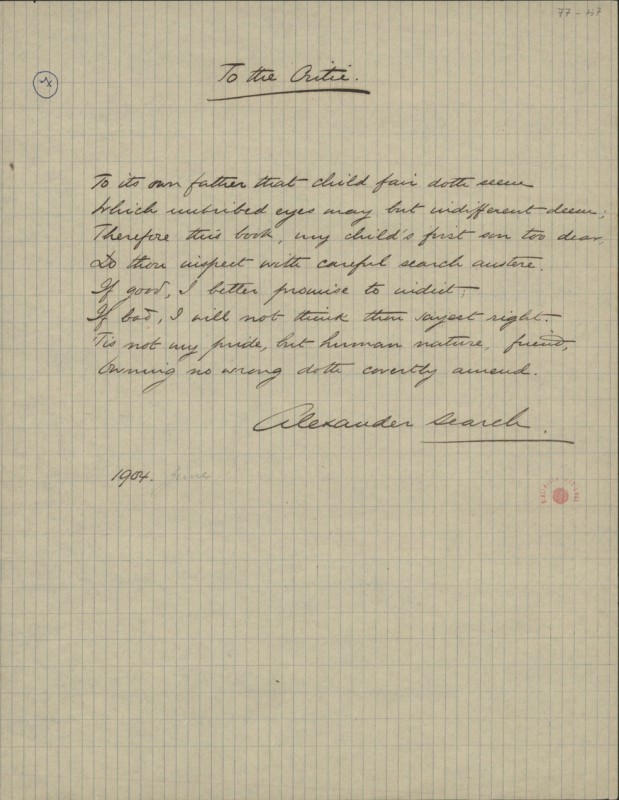 77 - 47
To the Critic.
To its own father that child fair doth seem
Which unbribed eyes may but indifferent deem;
Therefore this book, my child's first son too dear,
Do thou inspect with careful search austere.
If good, I better promise to indict;
If bad, I will not think thou sayest right.
Tis not my pride, but human nature, friend,
Owning no wrong doth covertly amend.
Alexander Search.
1904. June